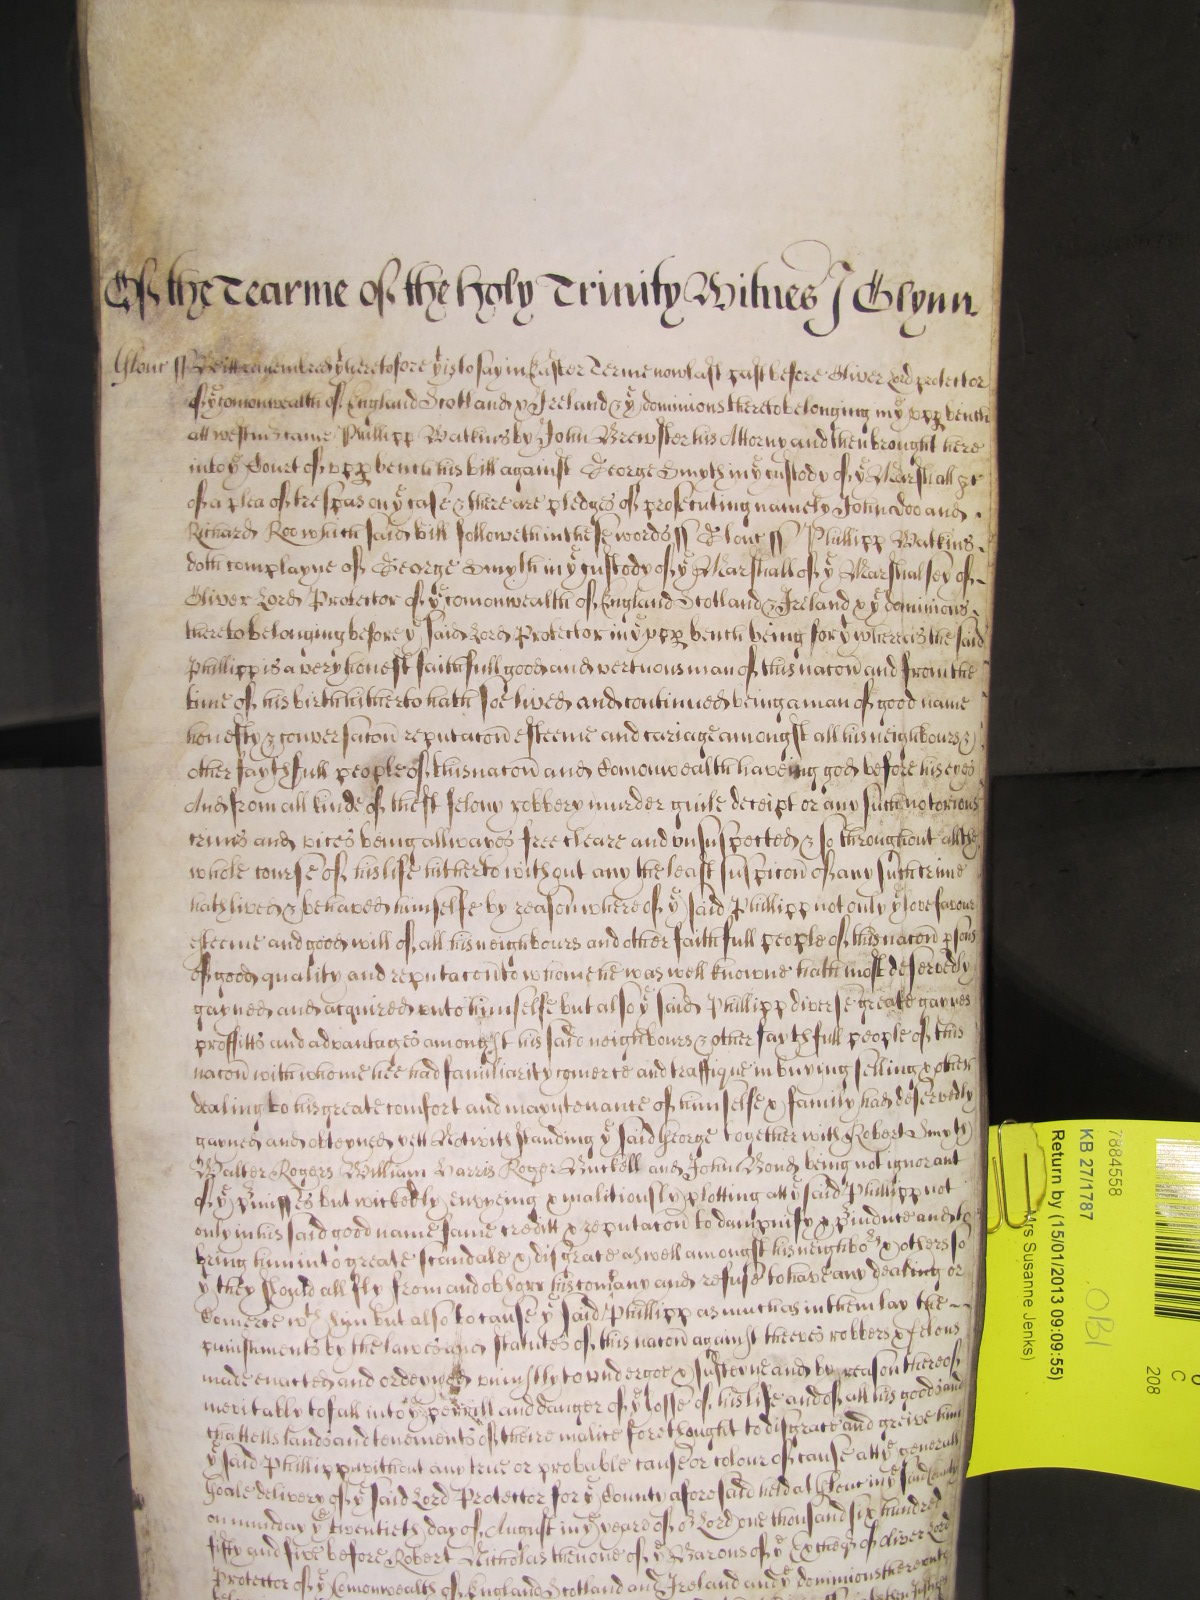 Of the Tearme of the Holy Trinity Witnes J Glynn
Glouc ss Be itt remembred yt heretofore yt is to say in Easter Terme now last past before Oliver Lord protector
of ye Comonwealth of England Scotland & Ireland & ye dominions thereto belonging in ye upp bench
att westm came Phillipp Watkins by John Brewster his Attorny and then brought here
into ye Court of upp bench his bill against George Smyth in ye custody of ye Marshall &c
of a plea of trespas on ye case & there are pledges of prosecuting namely John Doo and
Richard Roo which said bill followeth in these words ss Glouc ss Phillipp Watkins
doth complayne of George Smyth in ye custody of ye Marshall of ye Marshalsey of
Oliver Lord Protector of ye Comonwealth of England Scotland & Ireland & ye dominions
thereto belonging before ye said Lord Protector in ye upp bench being for yt whereas the said
Phillipp is a very honest faithfull good and vertuous man of this nacon and from the
time of his birth hitherto hath soe lived and continued being a man of good name
honesty & conversacon reputacon esteeme and cariage amongst all his neighbours &
other faythfull people of this nacon and Comonwealth haveing god before his eyes
And from all kinde of theft felony robbery murder guile deceipt or any such notorious
crimes and vices being allwayes free cleare and unsuspected & so throughout all the
whole course of his life hitherto without any the least suspicon of any such crime
hath lived & behaved himselfe by reason whereof ye said Phillipp not only ye love favour
esteeme and good will of all his neighbours and other faithfull people of this nacon psons
of good quality and reputacon to whome he was well knowne hath most deservedly
gayned and acquired unto himselfe but also ye said Phillipp diverse greate gaynes
proffitts and advantages amongst his said neighbours & other faythfull people of this
nacon with whome hee had familiarity comerce and traffique in buying selling & other
dealing to his greate comfort and mayntenance of himselfe & family had deservedly
gayned and obteyned yett Notwithstanding ye said George together with Robert Smyth
Walter Rogers William Harris Roger Burkell and John Bond being not ignorant
of ye pmisses but wickedly envyeing & malitiously plotting att ye said Phillipp not
only in his said good name fame creditt & reputacon to dampnify & pjudice and to
bring him into greate scandale & disgrace as well amongst his neighbors & others so
yt they should all fly from and abhorr his company and refuse to have any dealing or
Comerce wth him but also to cause ye said Phillipp as much as in them lay the
punishments by the lawes and statutes of this nacon against theeves robbers & felons
made enacted and ordeyned uniustly to undergoe & susteyne and by reason thereof
meritally to fall into ye perill and danger of ye losse of his life and of all his goods and
chattells lands and tenements of theire malice forethought to disgrace and greive him
ye said Phillipp without any true or probable cause or colour of cause att ye generall
Goale delivery of ye said Lord Protector for ye County aforesaid held at Glouc in ye said County
on munday ye twentieth day of August in ye yeare of or Lord one thousand six hundred
fifty and five before Robert Nicholas then one of ye Barons of ye Excheqr of Oliver Lord
Protector of ye Comonwealth of England Scotland and Ireland and ye dominions thereunto
7884558
KB 27/1787
Return by (15/01/2013 09:09:55)
Mrs Susanne Jenks)
OBI
C
208